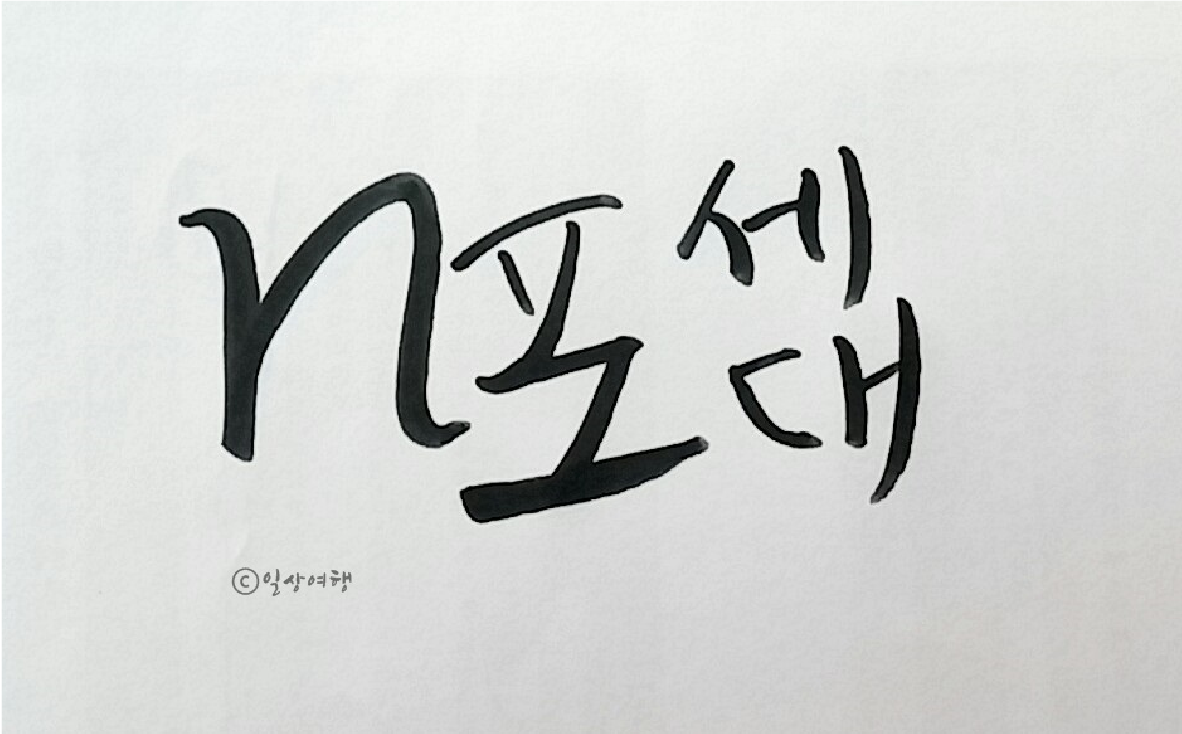 n포세대
©일상여행